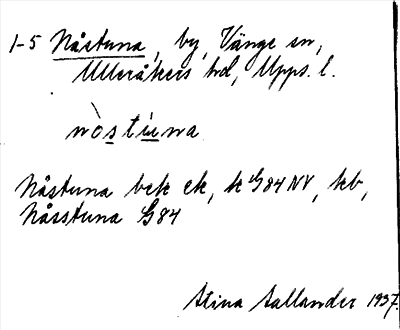 1-5 Nåstuna, by, Vänge sn,
Ulleråkers hd, Upps. l.
nòstu̇na
Nåstuna bek ek, k G84 NV, kb,
Nåsstuna G84
Stina Sallander 1937.